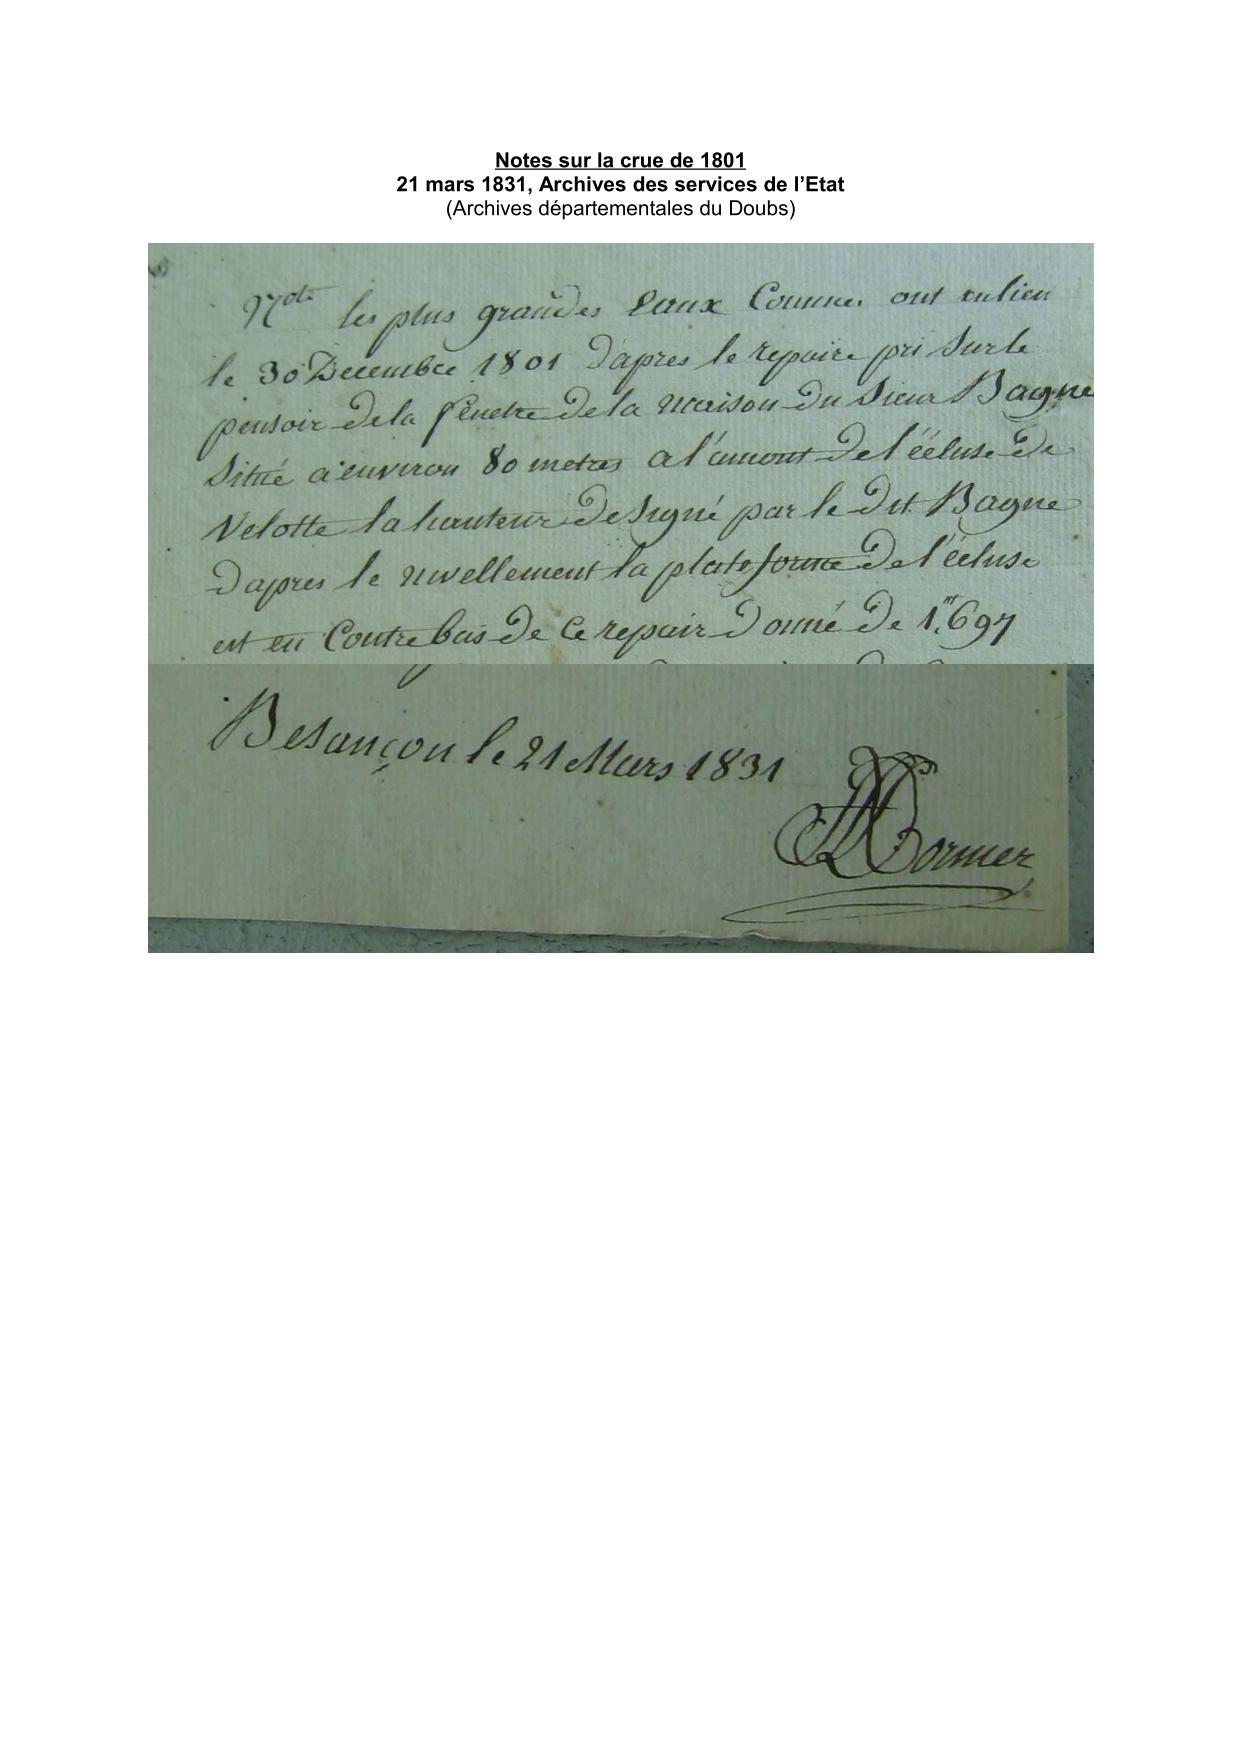 Notes sur la crue de 1801
21 mars 1831, Archives des services de l’Etat
(Archives départementales du Doubs)
Note les plus grandes Eaux Connues ont eu lieu
le 30 Decembre 1801 d'apres le repaire pri sur le
pensoir de la fenetre de la maison du Sieur Bagne
Situé a environ 80 metres a l'amont de l'écluse de
Velotte la hauteur designé par le dit Bagne
d'apres le nivellement la plateforme de l'écluse
est en Contrebas de ce repair donné de 1.m697
Besançon le 21 Mars 1831